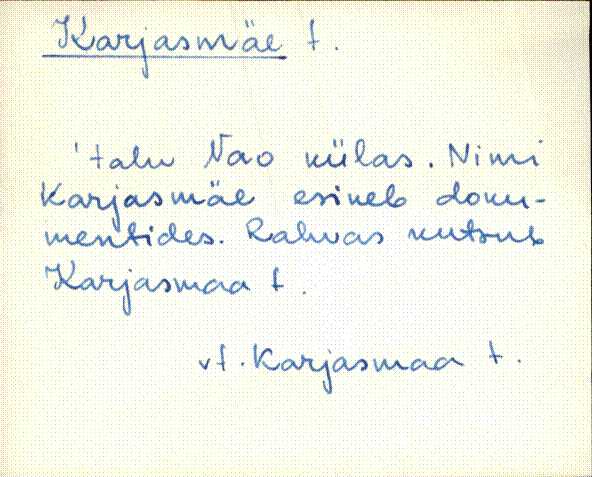 Karjasmäe t.
'talu Nao külas. Nimi
Karjasmäe esineb doku-
mentides. Rahvas kutsub
Karjasmaa t.
vt. Karjasmaa t.